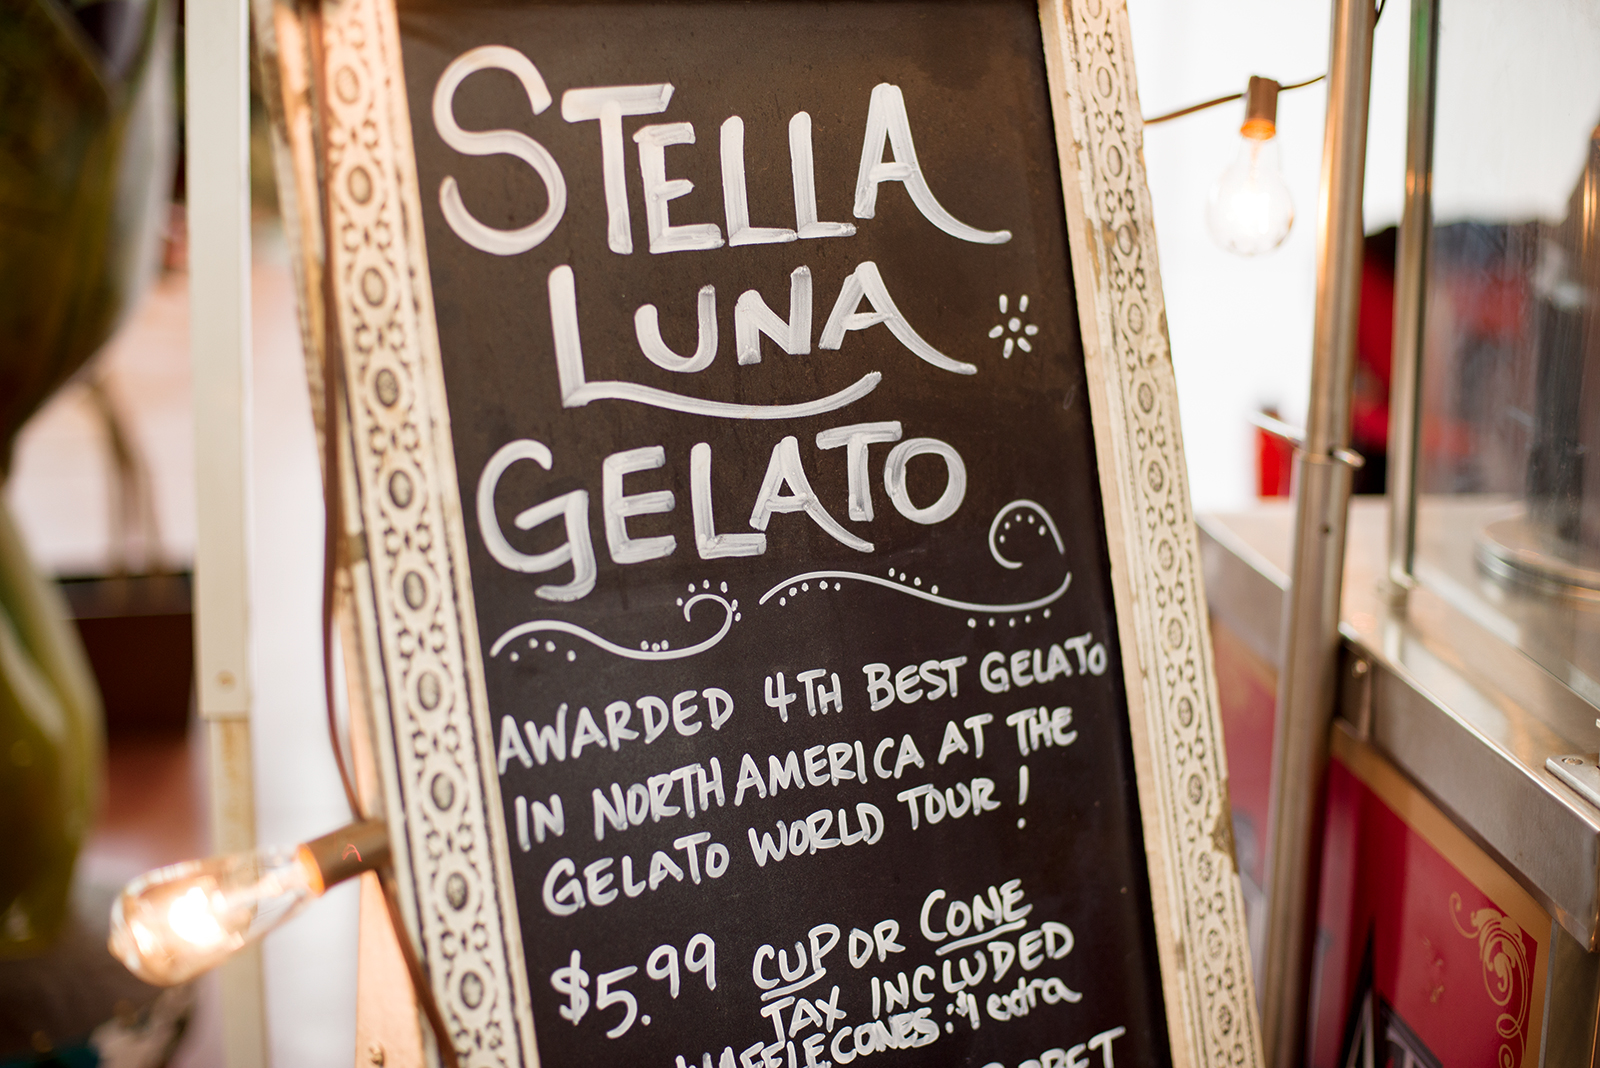 STELLA
LUNA
GELATO
AWARDED 4TH BEST GELATO
IN NORTH AMERICA AT THE
GELATO WORLD TOUR!
$5.99 CUP OR CONE
TAX INCLUDED
WAFFLE CONES: $1 extra